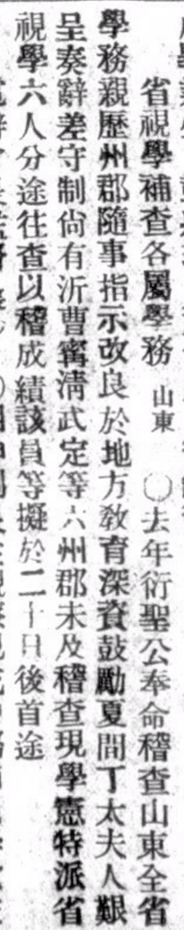 省視學補查各屬學務 山東 ○去年衍聖公奉命稽查山東全省
學務親歷州郡隨事指示改良於地方敎育深資鼓勵夏間丁太夫人艱
呈奏辭差守制尙有沂曹甯淸武定等六州郡未及稽查現學憲特派省
視學六人分途往查以稽成績該員等擬於二十日後首途